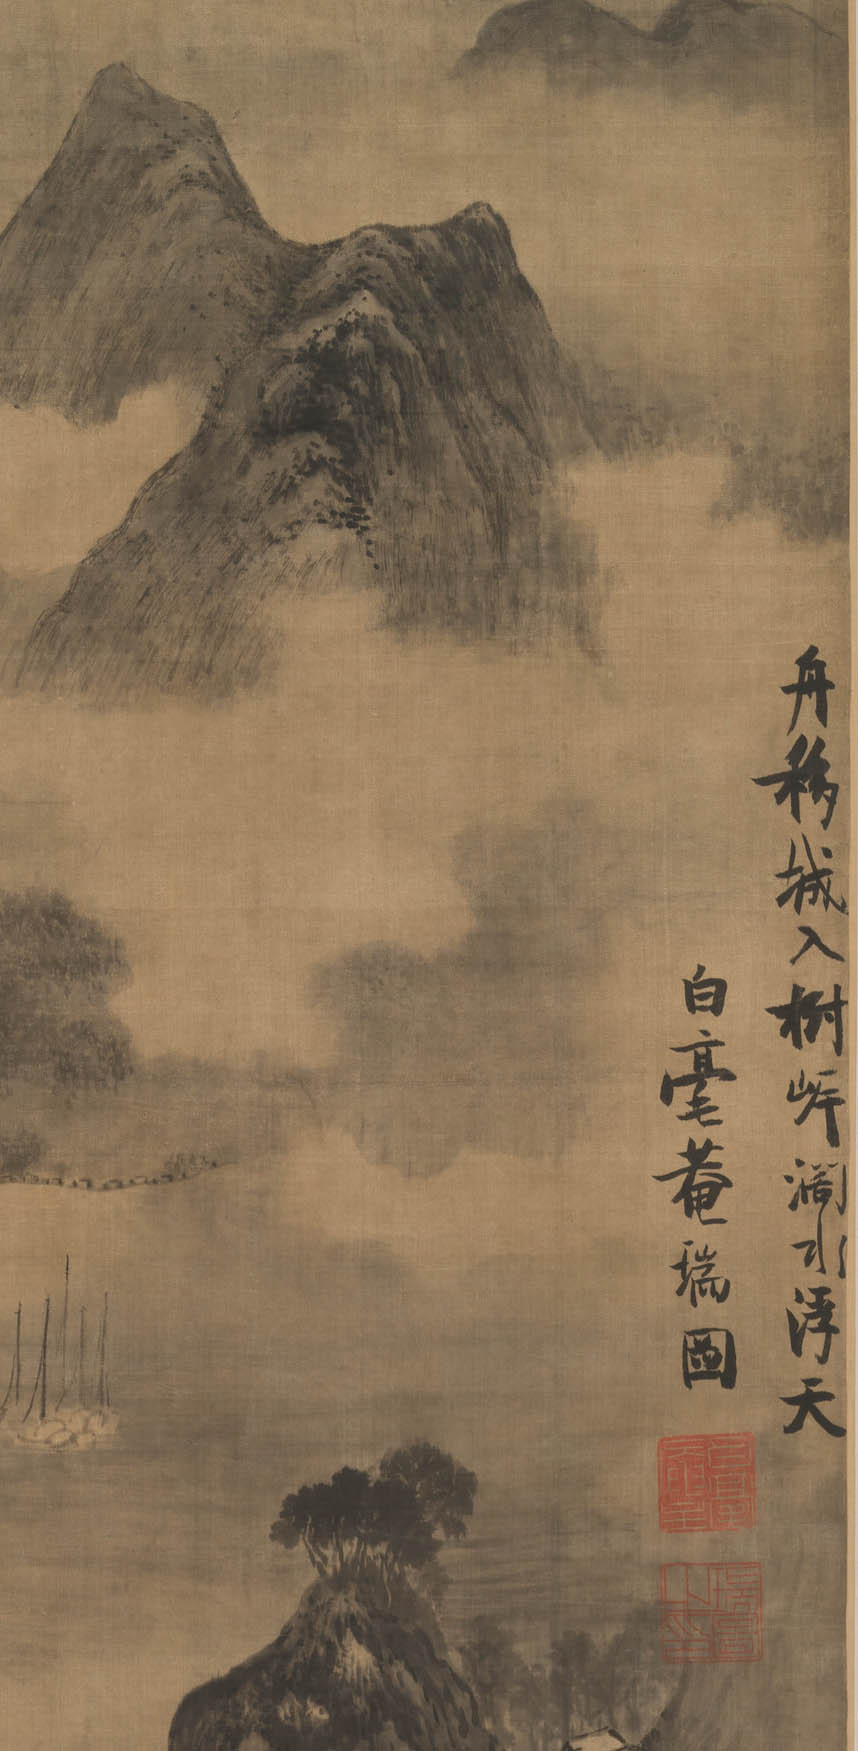 舟移城入樹岸濶水浮天
白毫菴瑞圖